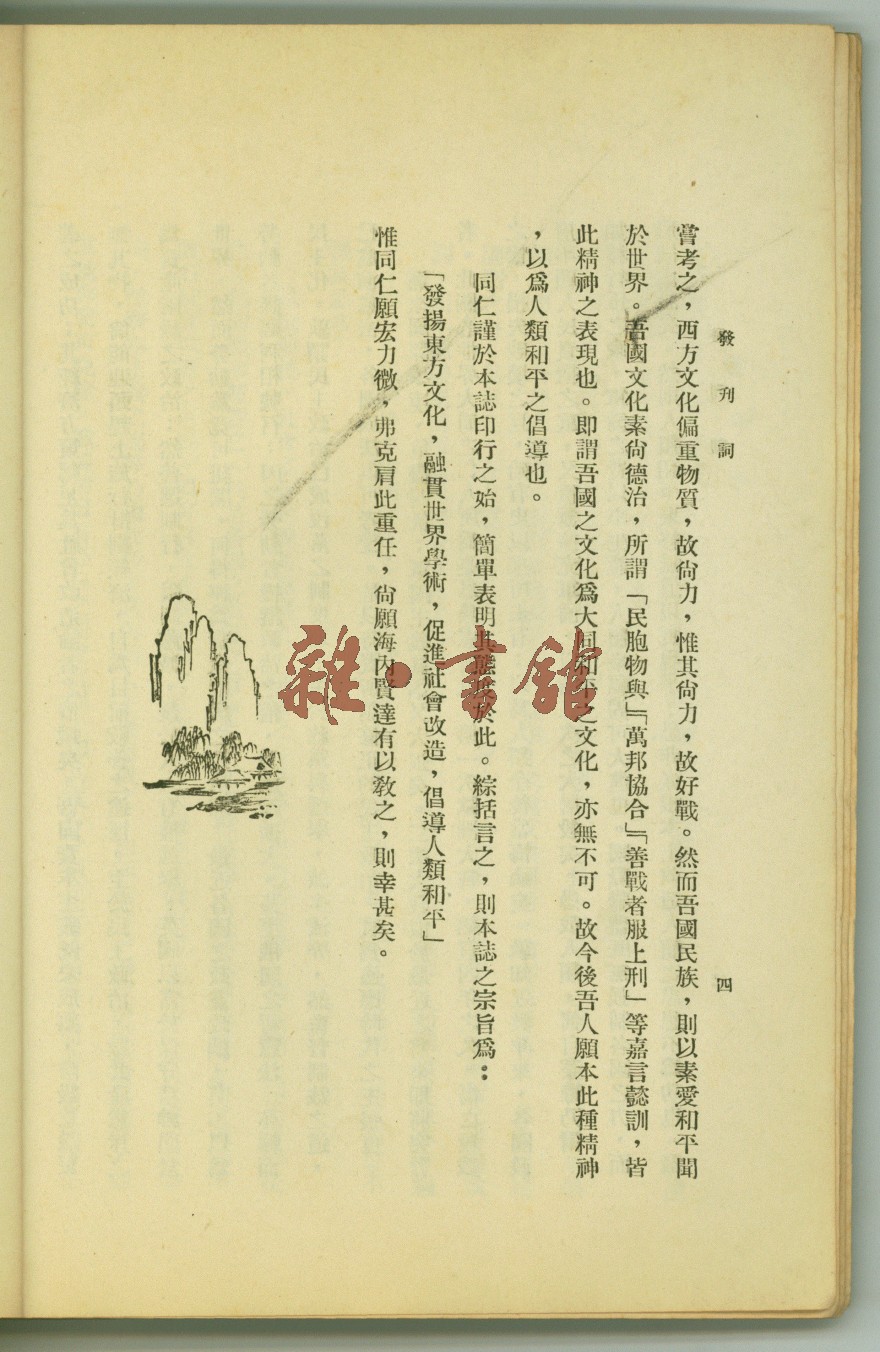 發刊詞
四
嘗考之，西方文化偏重物質，故尙力，惟其尙力，故好戰。然而吾國民族，則以素愛和平聞
於世界。吾國文化素尙德治，所謂「民胞物與」「萬邦協合」「善戰者服上刑」等嘉言懿訓，皆
此精神之表現也。卽謂吾國之文化爲大同和平之文化，亦無不可。故今後吾人願本此種精神
，以爲人類和平之倡導也。
同仁謹於本誌印行之始，簡單表明其態度於此。綜括言之，則本誌之宗旨爲：
「發揚東方文化，融貫世界學術，促進社會改造，倡導人類和平」
惟同仁願宏力微，弗克肩此重任，尙願海內賢達有以敎之，則幸甚矣。
雜·書館